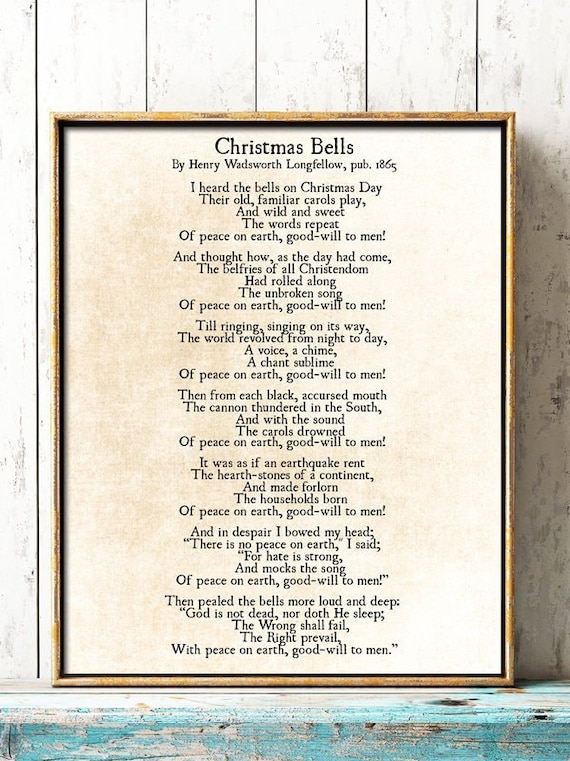 Christmas Bells
By Henry Wadsworth Longfellow, pub. 1865
I heard the bells on Christmas Day
Their old, familiar carols play,
And wild and sweet
The words repeat
Of peace on earth, good-will to men!
And thought how, as the day had come,
The belfries of all Christendom
Had rolled along
The unbroken song
Of peace on earth, good-will to men!
Till ringing, singing on its way,
The world revolved from night to day,
A voice, a chime,
A chant sublime
Of peace on earth, good-will to men!
Then from each black, accursed mouth
The cannon thundered in the South,
And with the sound
The carols drowned
Of peace on earth, good-will to men!
It was as if an earthquake rent
The hearth-stones of a continent,
And made forlorn
The households born
Of peace on earth, good-will to men!
And in despair I bowed my head;
“There is no peace on earth," I said;
“For hate is strong,
And mocks the song
Of peace on earth, good-will to men!”
Then pealed the bells more loud and deep:
“God is not dead, nor doth He sleep;
The Wrong shall fail,
The Right prevail,
With peace on earth, good-will to men.”